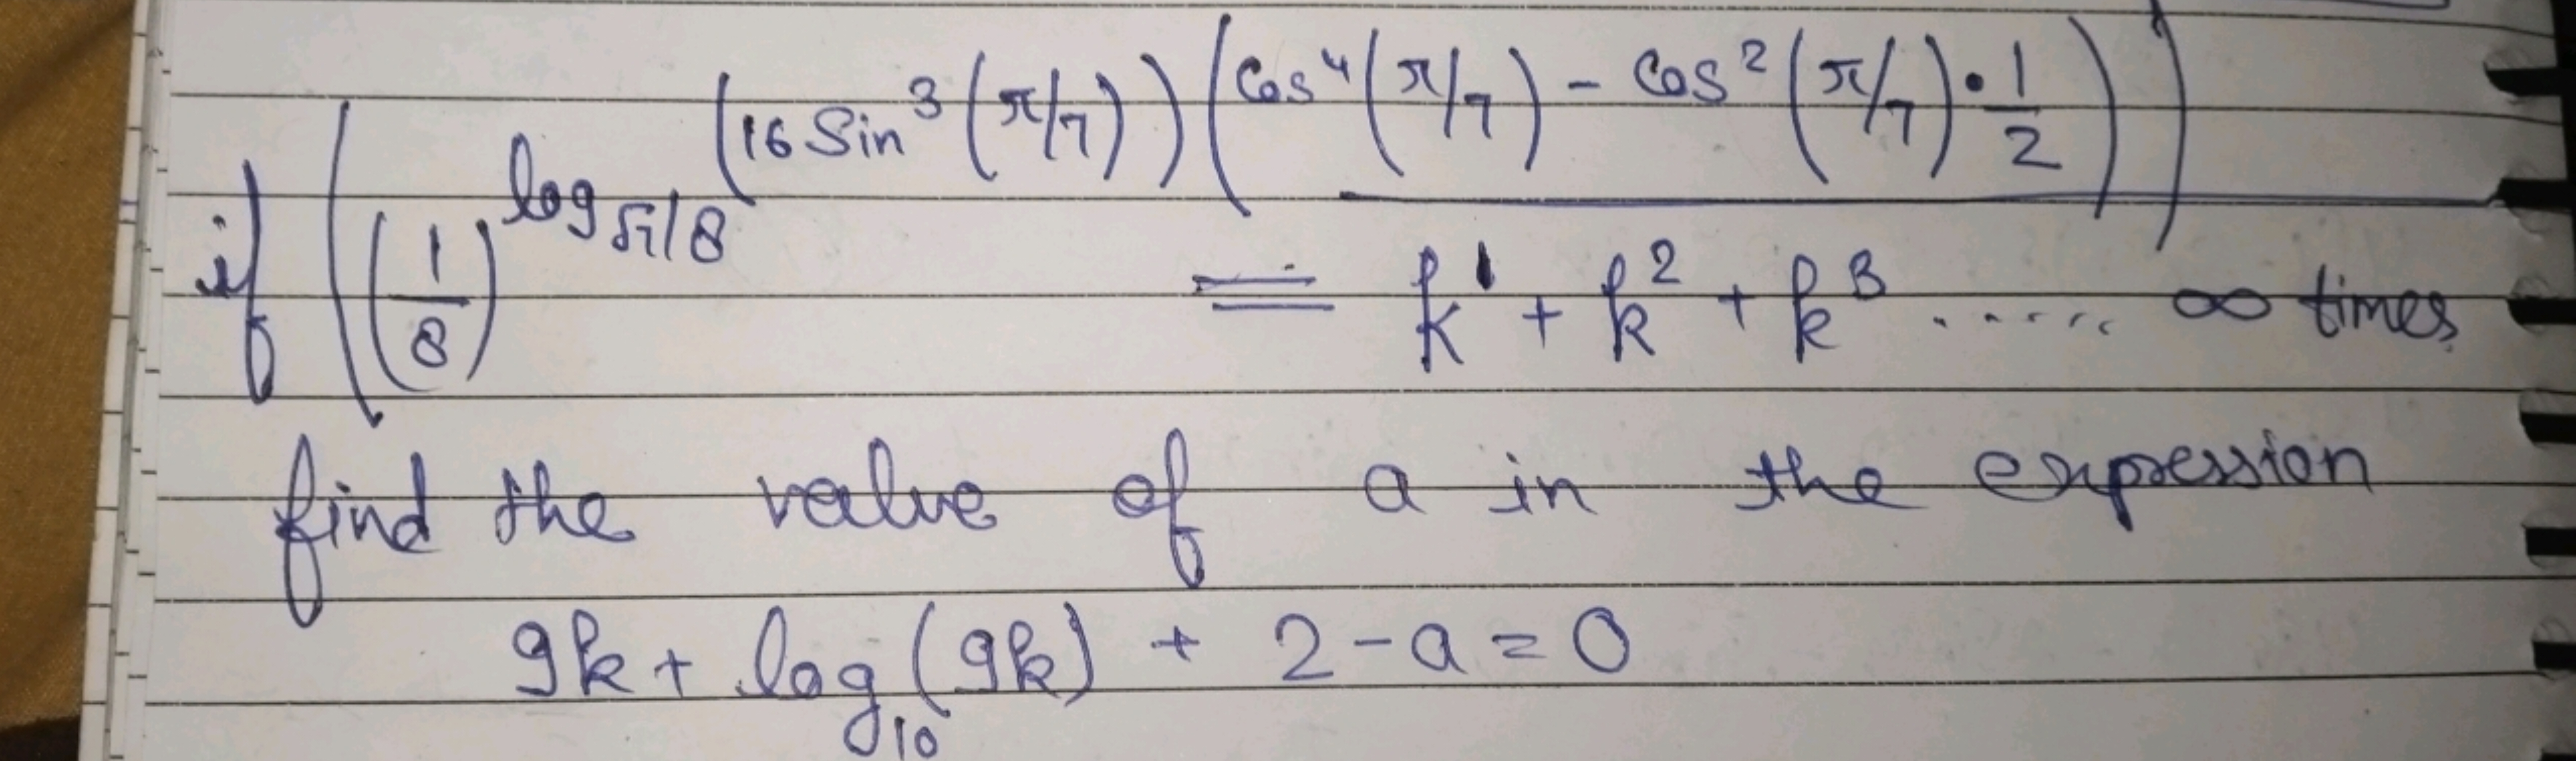 if ((1/8)^log_{√7/8} (16 Sin³(π/7)) (Cos⁴(π/7) - Cos²(π/7)·1/2))
= k¹ + k² + k³ ...... ∞ times
find the value of a in the expression
9k + log₁₀(9k) + 2 - a = 0